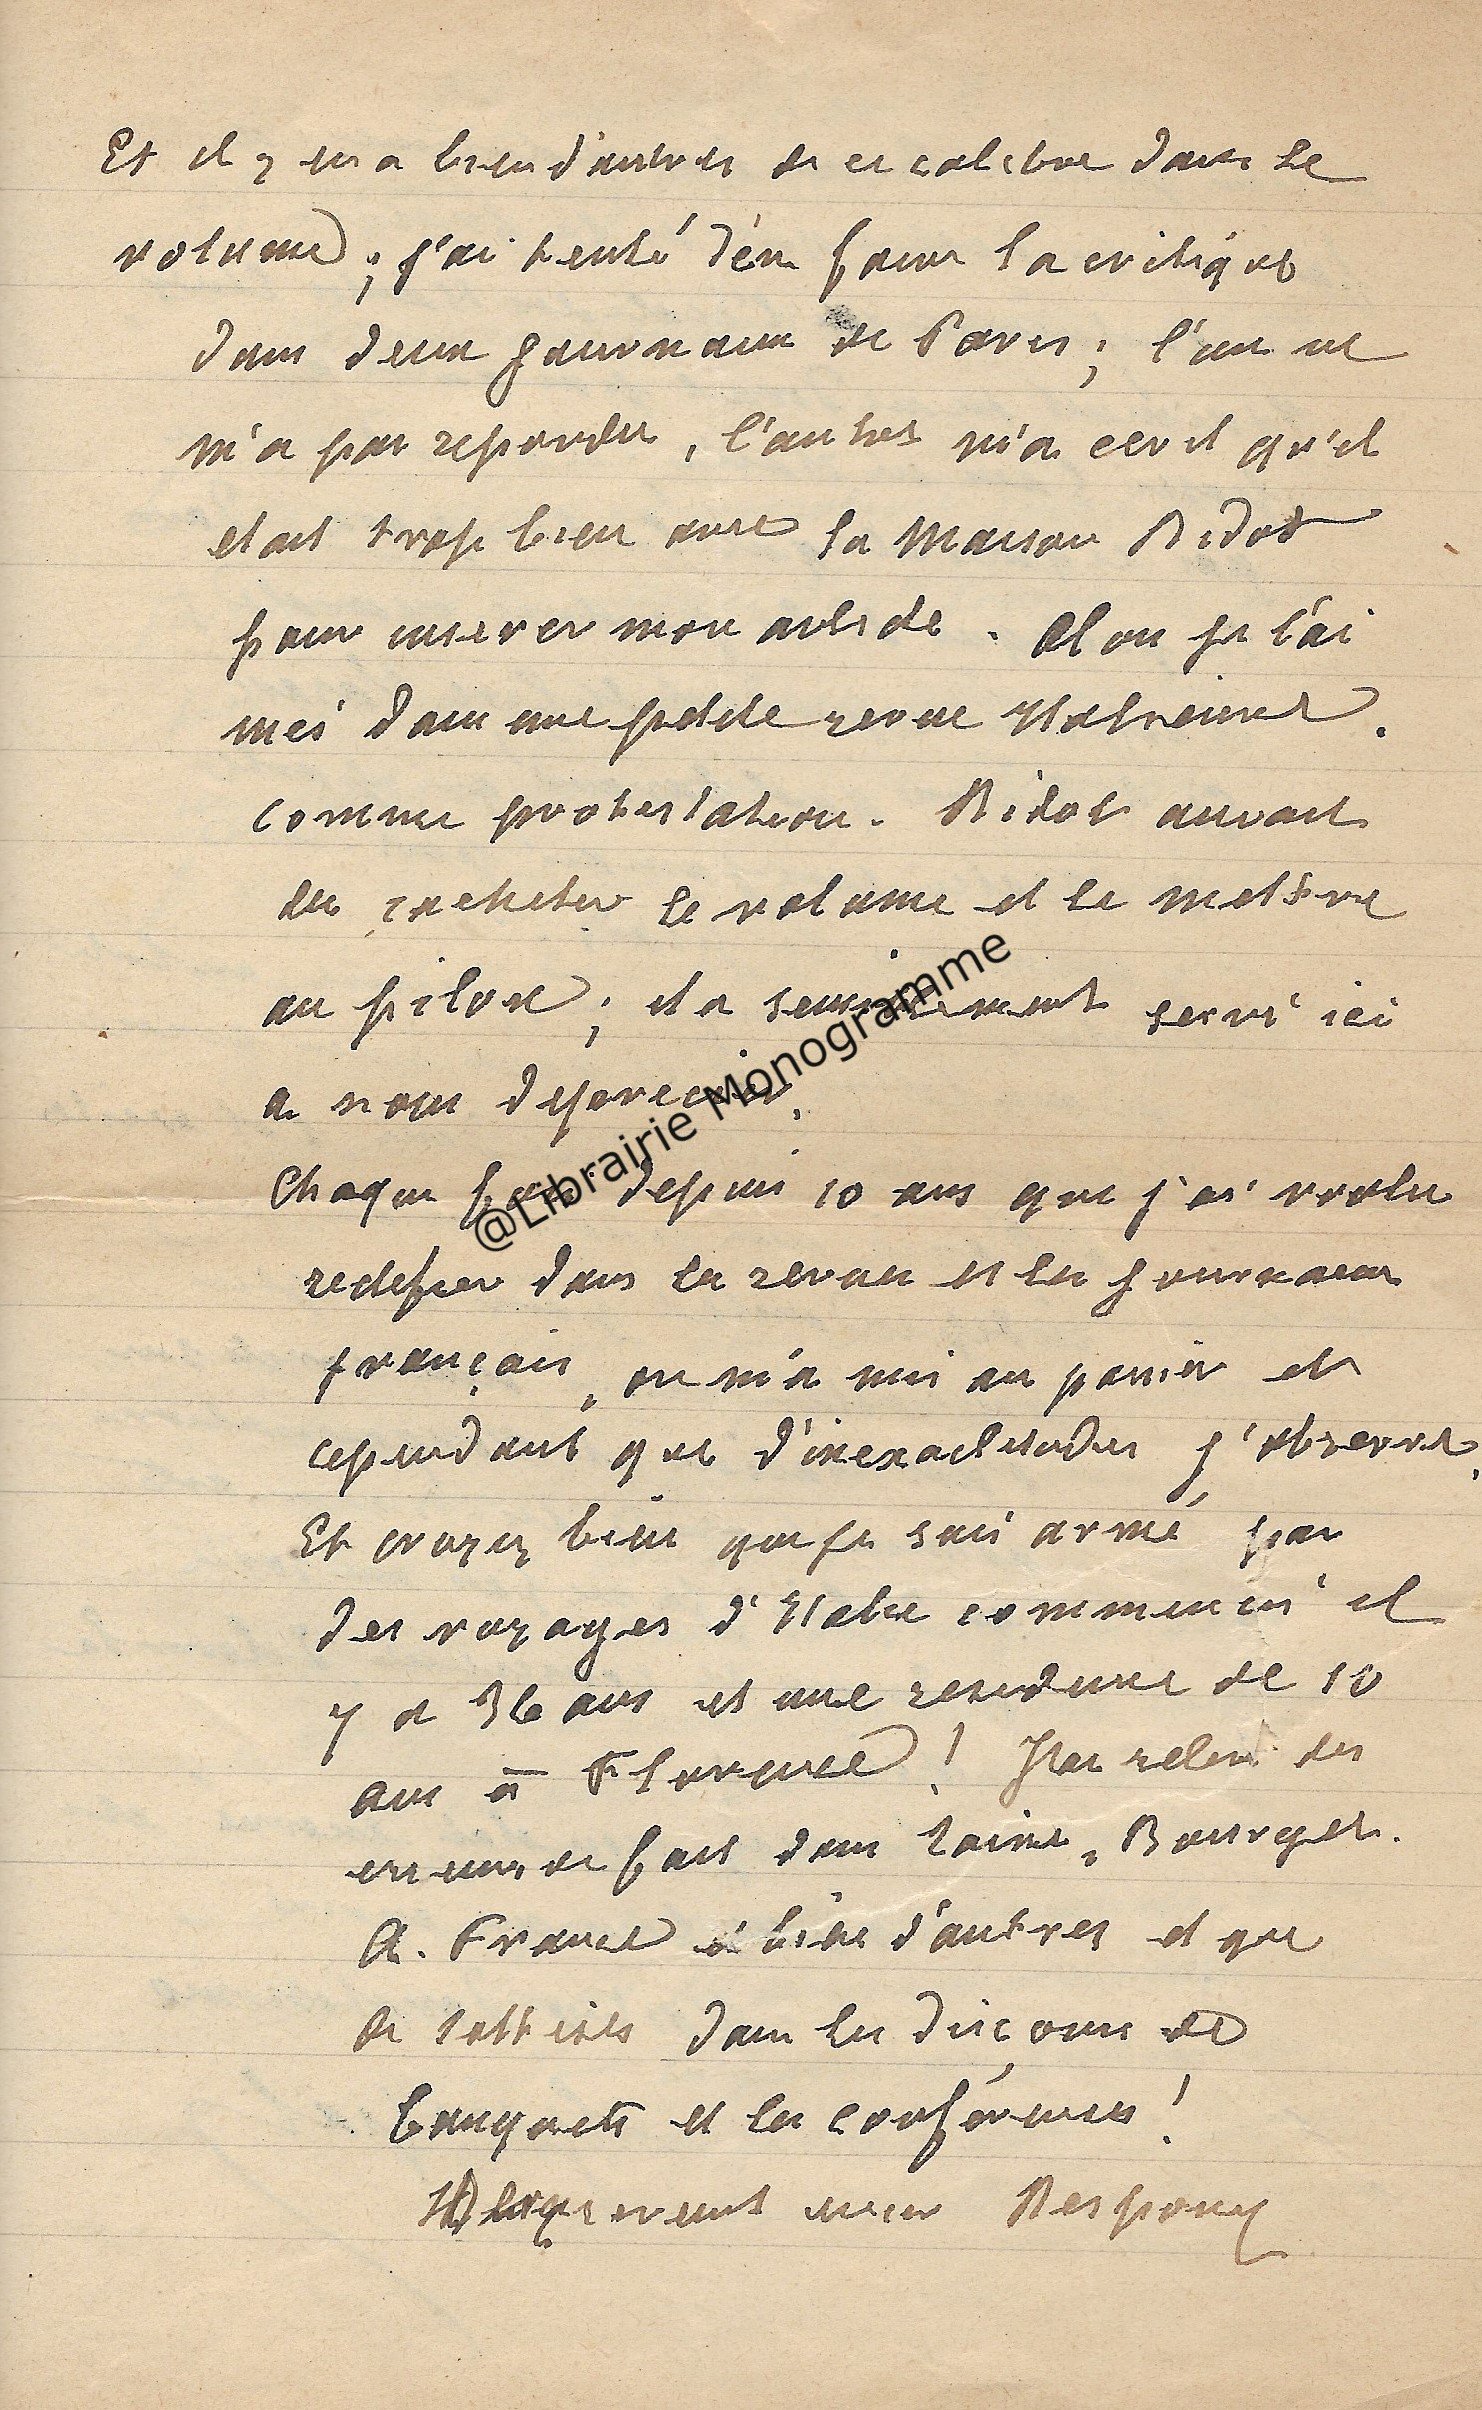 Et il y en a bien d'autres de ce calibre dans le
volume ; j'ai tenté d'en faire la critique
dans deux journaux de Paris ; l'un ne
m'a pas repondu, l'autre m'a ecrit qu'il
etait trop bien avec la Maison Didot
pour inserer mon article. Alors je l'ai
mis dans une petite revue Italienne.
comme protestation. Didot aurait
du racheter le volume et le mettre
au pilon ; il a seulement servi ici
a nous deprecier.
Chaque fois depuis 10 ans que j'ai voulu
rectifier dans les revues et les journaux
français, on m'a mis au panier et
cependant que d'inexactitudes j'observe.
Et croyez bien que je suis armé par
des voyages d'Italie commencés il
y a 36 ans et une residence de 10
ans à Florence ! J'ai relevé des
erreurs de fait dans Taine, Bourget.
A. France & bien d'autres et que
de sottises dans les discours de
banquets et les conférences !
mon
@Librairie Monogramme